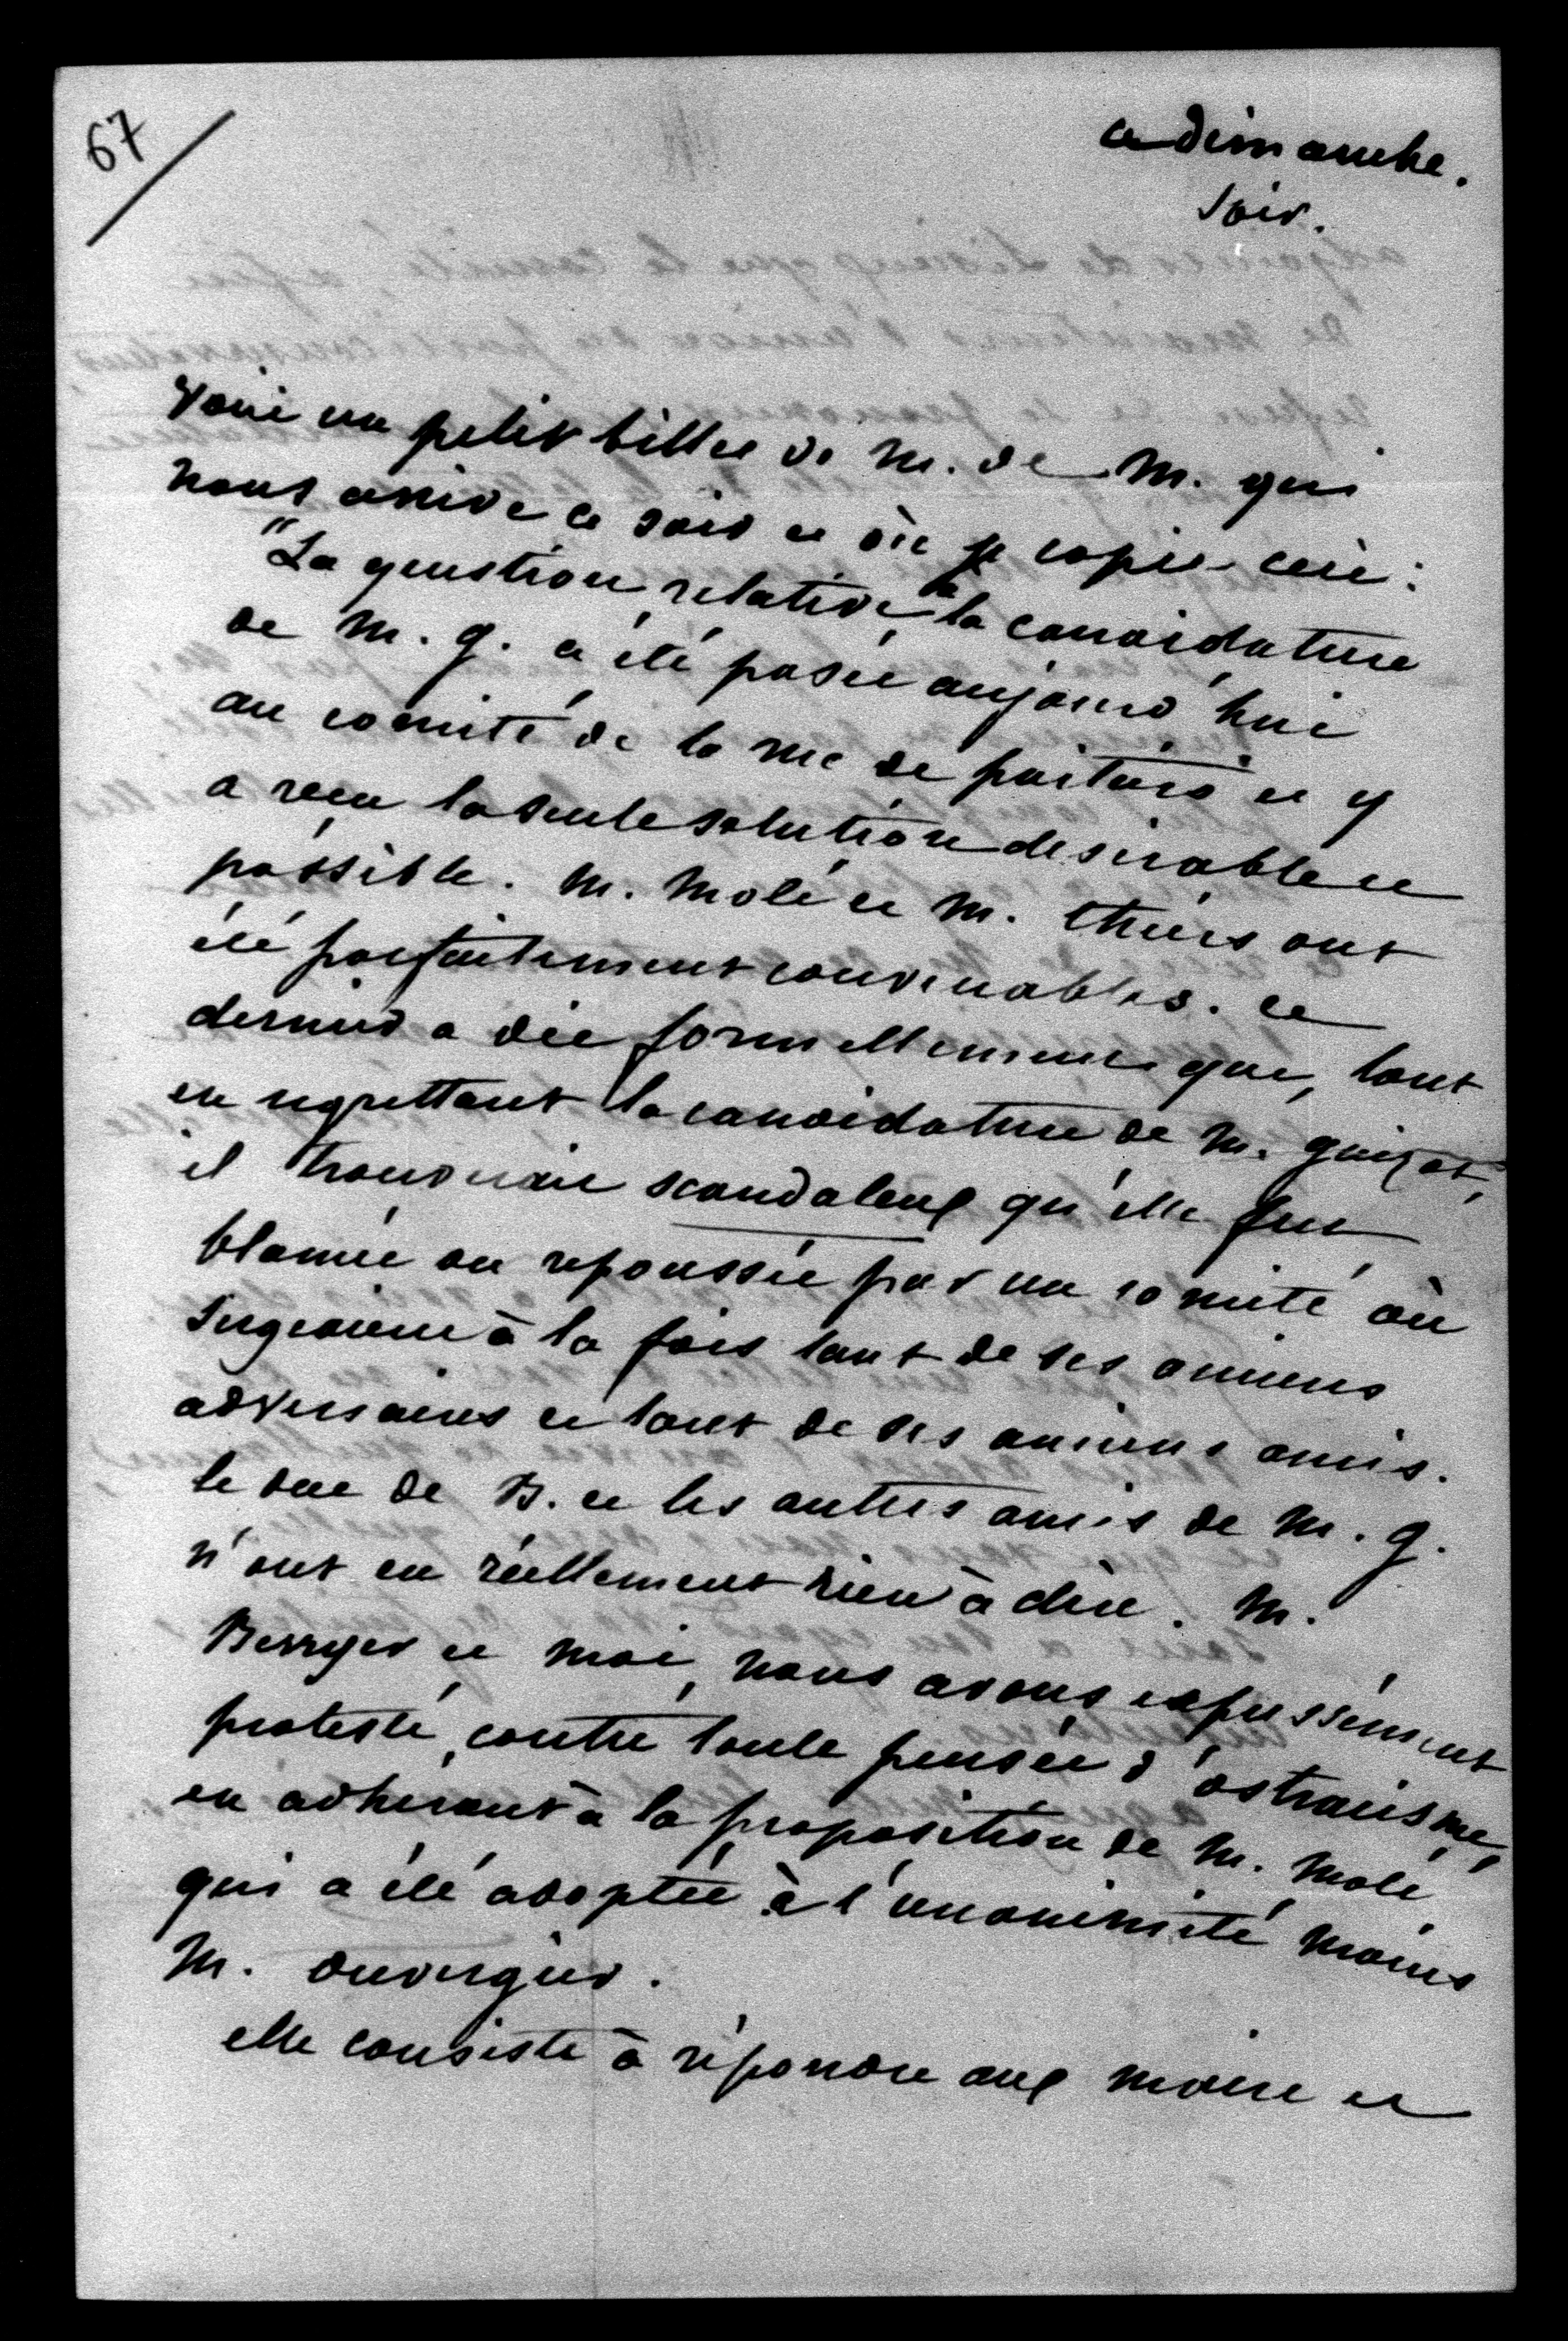 67
ce dimanche.
soir.
voici un petit billet de M. de M. qui
nous arrive ce soir et où je copie ceci :
"La question relative à la candidature
de M. G. a été posée aujourd'hui
au comité de la rue de poitiers et y
a reçu la seule solution desirable et
possible. M. Molé et M. thiers ont
été parfaitement convenables. ce
dernier a dit formellement que, tout
en regrettant la candidature de M. guizot,
il trouverait scandaleux qu'elle fut
blamée ou repoussée par un comité où
siegeaient à la fois tant de ses anciens
adversaires et tant de ses anciens amis.
le duc de B. et les autres amis de M. G.
n'ont eu réellement rien à dire. M.
Berryer et moi, nous avons expressément
protesté, contre toute pensée d'ostracisme,
en adhérant à la proposition de M. Molé
qui a été adoptée à l'unanimité moins
M. duvergier.
elle consiste à répondre aux maire et